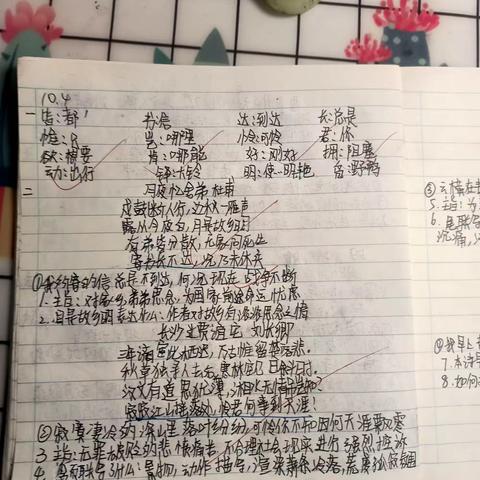 10.4
一
皆:都 达:到达 长:总是
恰:只 岂:哪里 怜:可怜 君:你
欲:想要 肯:哪能 好:刚好 拥:阻塞
动:出行 铎:大铃 明:使…明艳 凫:野鸭
二
月夜忆舍弟 杜甫
戍鼓断人行,边秋一雁声
露从今夜白,月是故乡明
有弟皆分散,无家问死生
寄书长不达,况乃未休兵
①我所寄的书信总是不到达,何况现在战争不断
1.主旨:对家乡弟弟思念,为国家前途命运忧患
2.月是故乡明表达什么:作者对故乡有浓浓思念之情
长沙过贾谊宅 刘长卿
三年谪宦此栖迟,万古惟留楚客悲.
秋草独寻人去后,寒林空见日斜时.
汉文有道恩犹薄,湘水无情吊岂知?
寂寂江山摇落处,怜君何事到天涯!
②寂寞凄冷的深山里落叶纷纷,可怜你不知因何天涯
3.主旨:无罪 的悲愤痛苦,不合理社会现实进行强烈控诉
4. 联 景物,动作描写,渲染萧条冷落,荒废孤寂氛围
③
5.主旨:为
6.尾联
沉痛,
④我早上
7.本诗
8.如何